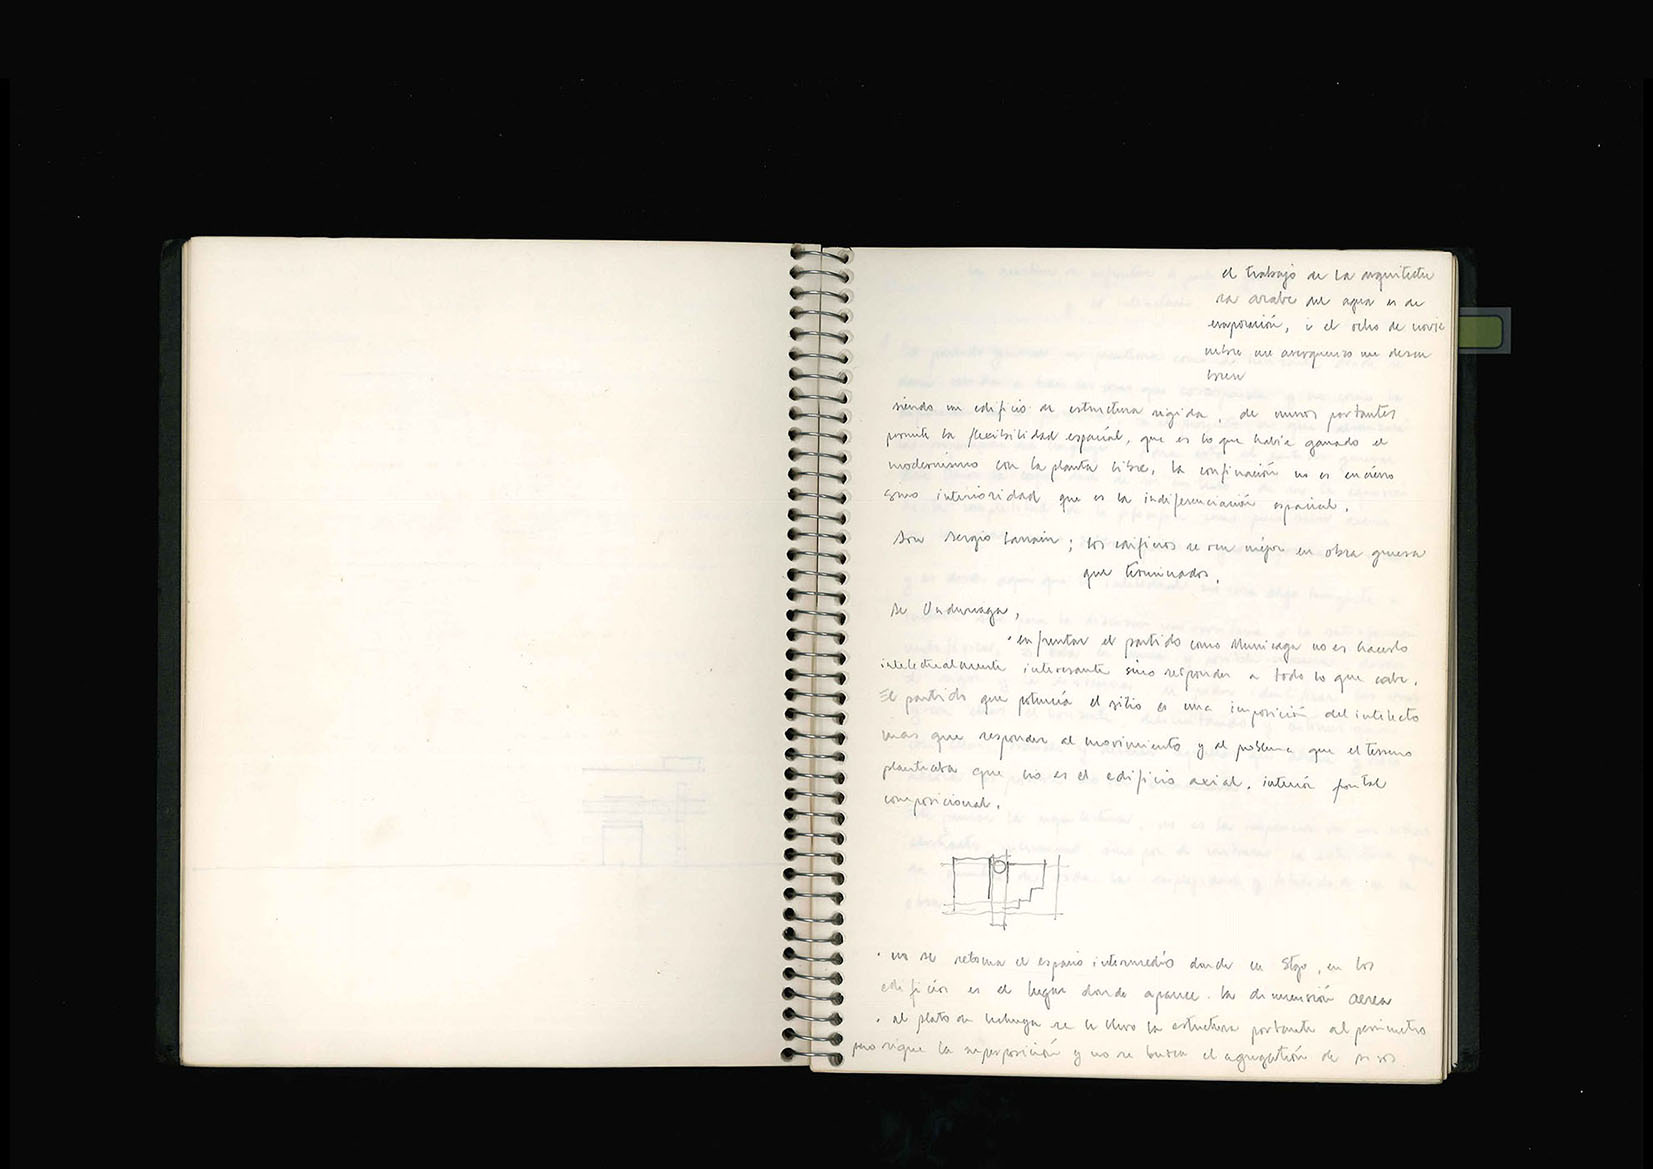 el trabajo de la arquitectu
ra arabe del agua es de
evaporación, el ocho de novie
mbre me
siendo un edificio de estructura rigida, de muros portantes
permite la flexibilidad espacial, que es lo que había ganado el
modernismo con la planta libre, la confinación no es encierro
sino interioridad que es la indiferenciación espacial.
Don Sergio Larraín; los edificios se ven mejor en obra gruesa
que terminados.
de Undurraga,
· enfrentar el partido como Munizaga no es hacerlo
intelectualmente interesante sino responder a todo lo que cabe.
El partido que potencia el sitio es una imposición del intelecto
mas que responder al movimiento y al problema que el terreno
planteaba que no es el edificio axial, interior frontal
composicional.
· no se retoma el espacio intermedio donde en Stgo, en los
edificios es el lugar donde aparece la dimensión aerea
· al plato de lechuga se le llevo la estructura portante al perimetro
pero sigue la superposición y no se busca el agregatión de pisos